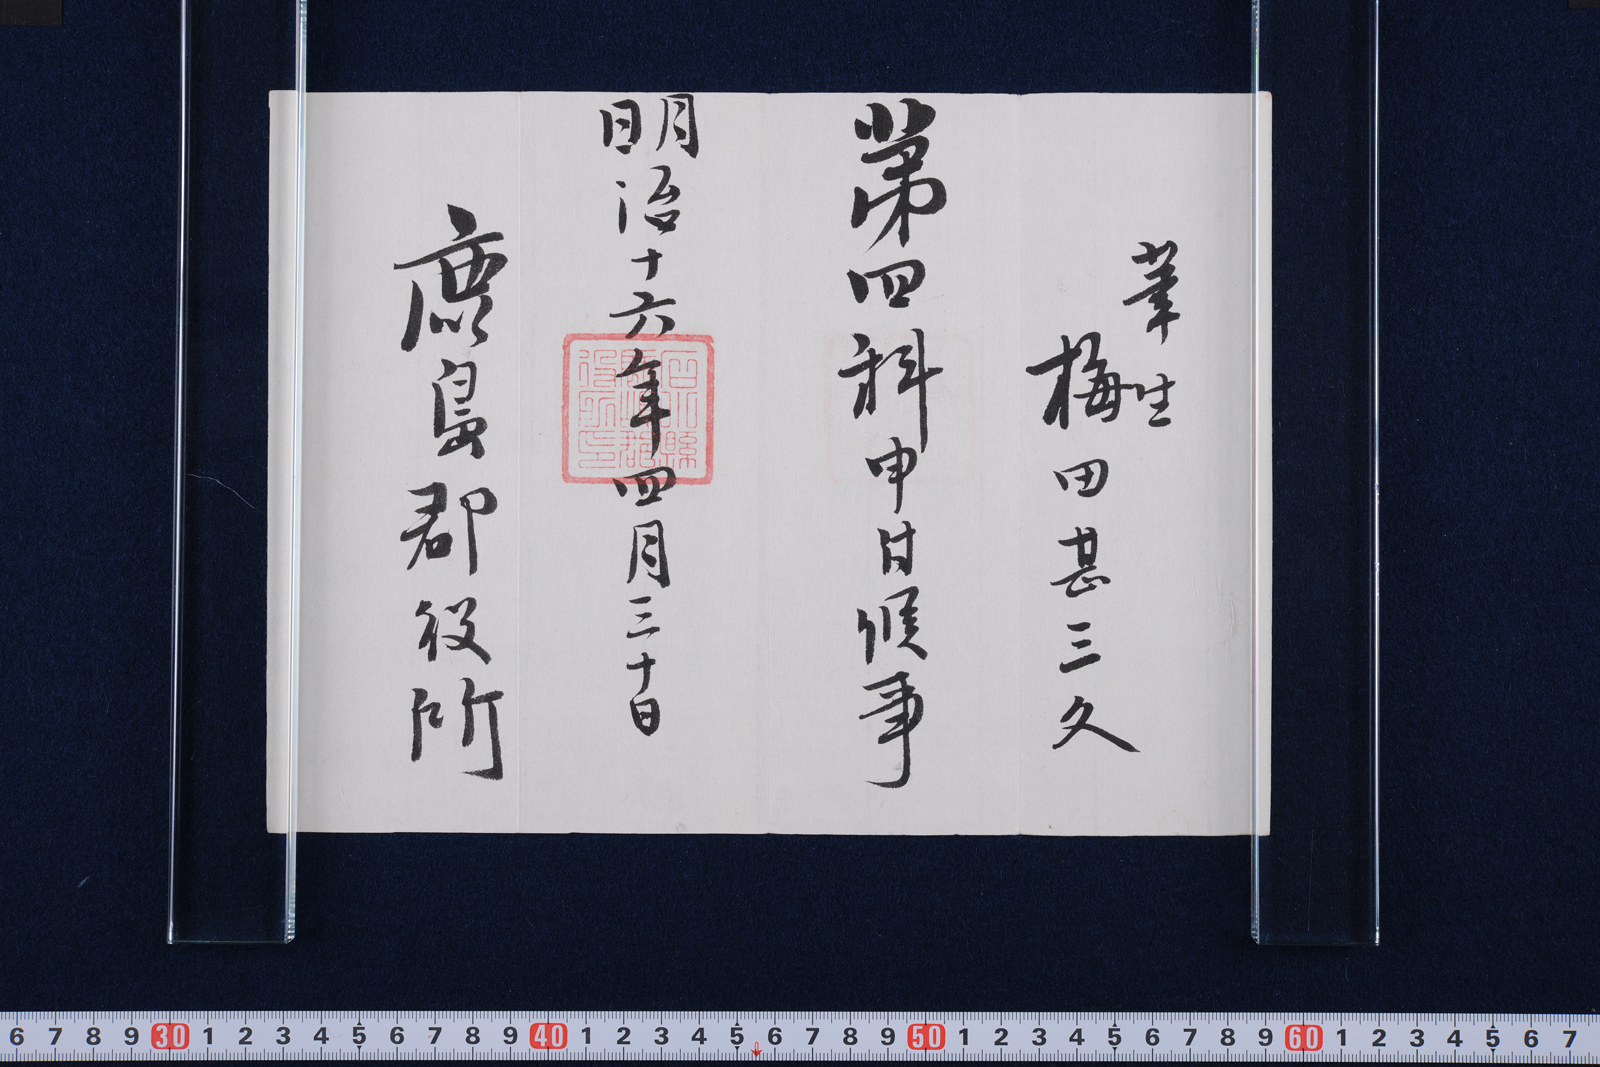 筆生
梅田甚三久
第四科申付候事
明治十六年四月三十日
鹿島郡役所
石川縣鹿島郡役所印
6 7 8 9 30 1 2 3 4 5 6 7 8 9 40 1 2 3 4 5 6 7 8 9 50 1 2 3 4 5 6 7 8 9 60 1 2 3 4 5 6 7